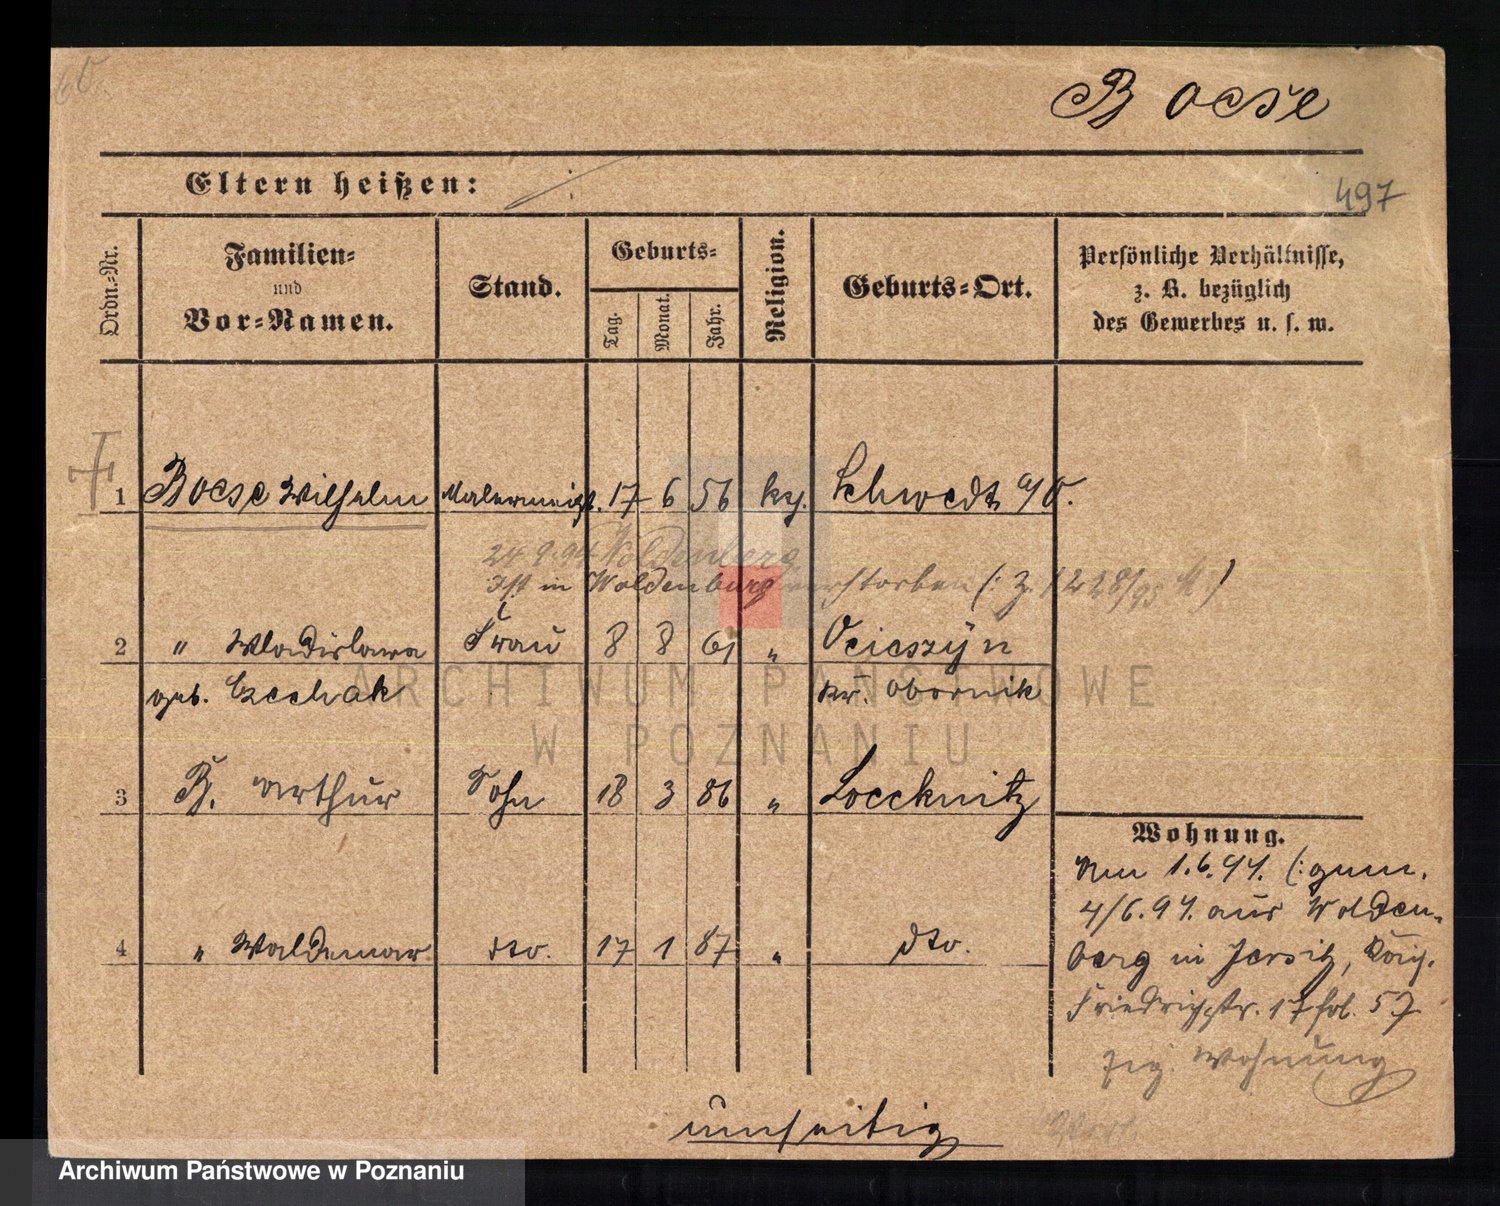 Boese
Eltern heißen:
497
Ordn.-Nr.
Familien-
und
Vor-Namen.
Stand.
Geburts-
Tag.
Monat.
Jahr.
Religion.
Geburts-Ort.
Persönliche Verhältnisse,
z. B. bezüglich
des Gewerbes u. s. w.
1 Boese Wilhelm Malermeist. 17 6 56 Schwedt a/O.
24.9.94 Woldenberg
Ist in Woldenburg verstorben (: Z. 1228/95 :)
2 " Wladislawa Frau 8 8 61 " Ocieszyn
geb. Czechak Kr. Obornik
3 B. Arthur Sohn 18 3 86 " Loecknitz
Wohnung.
Am 1.6.94. (: gem.
4/6.94. aus Wolden-
4 " Waldemar dto. 17 1 87 " dto.
berg in Jersitz,
Friedrichstr. 17 frb. 57
Wohnung
umseitig
ARCHIWUM PAŃSTWOWE
W POZNANIU
Archiwum Państwowe w Poznaniu